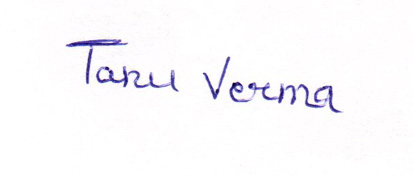 Tanu Verma